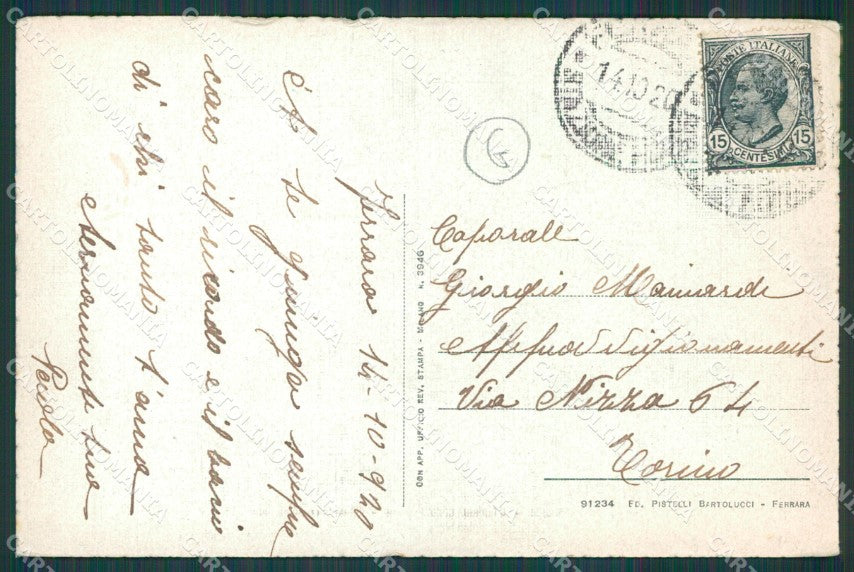 Ferrara 14-10-920
A te giunga sempre
caro il ricordo e il bacio
di chi tanto t'ama
eternamente tua
CON APP. UFFICIO REV. STAMPA - MILANO N. 3946
14.10.20
POSTE ITALIANE
15 15
CENTESIMI
Caporale
Giorgio Mainardi
Via Nizza 64
Torino
91234 ED. PISTELLI BARTOLUCCI - FERRARA
CARTOLINOMANIA